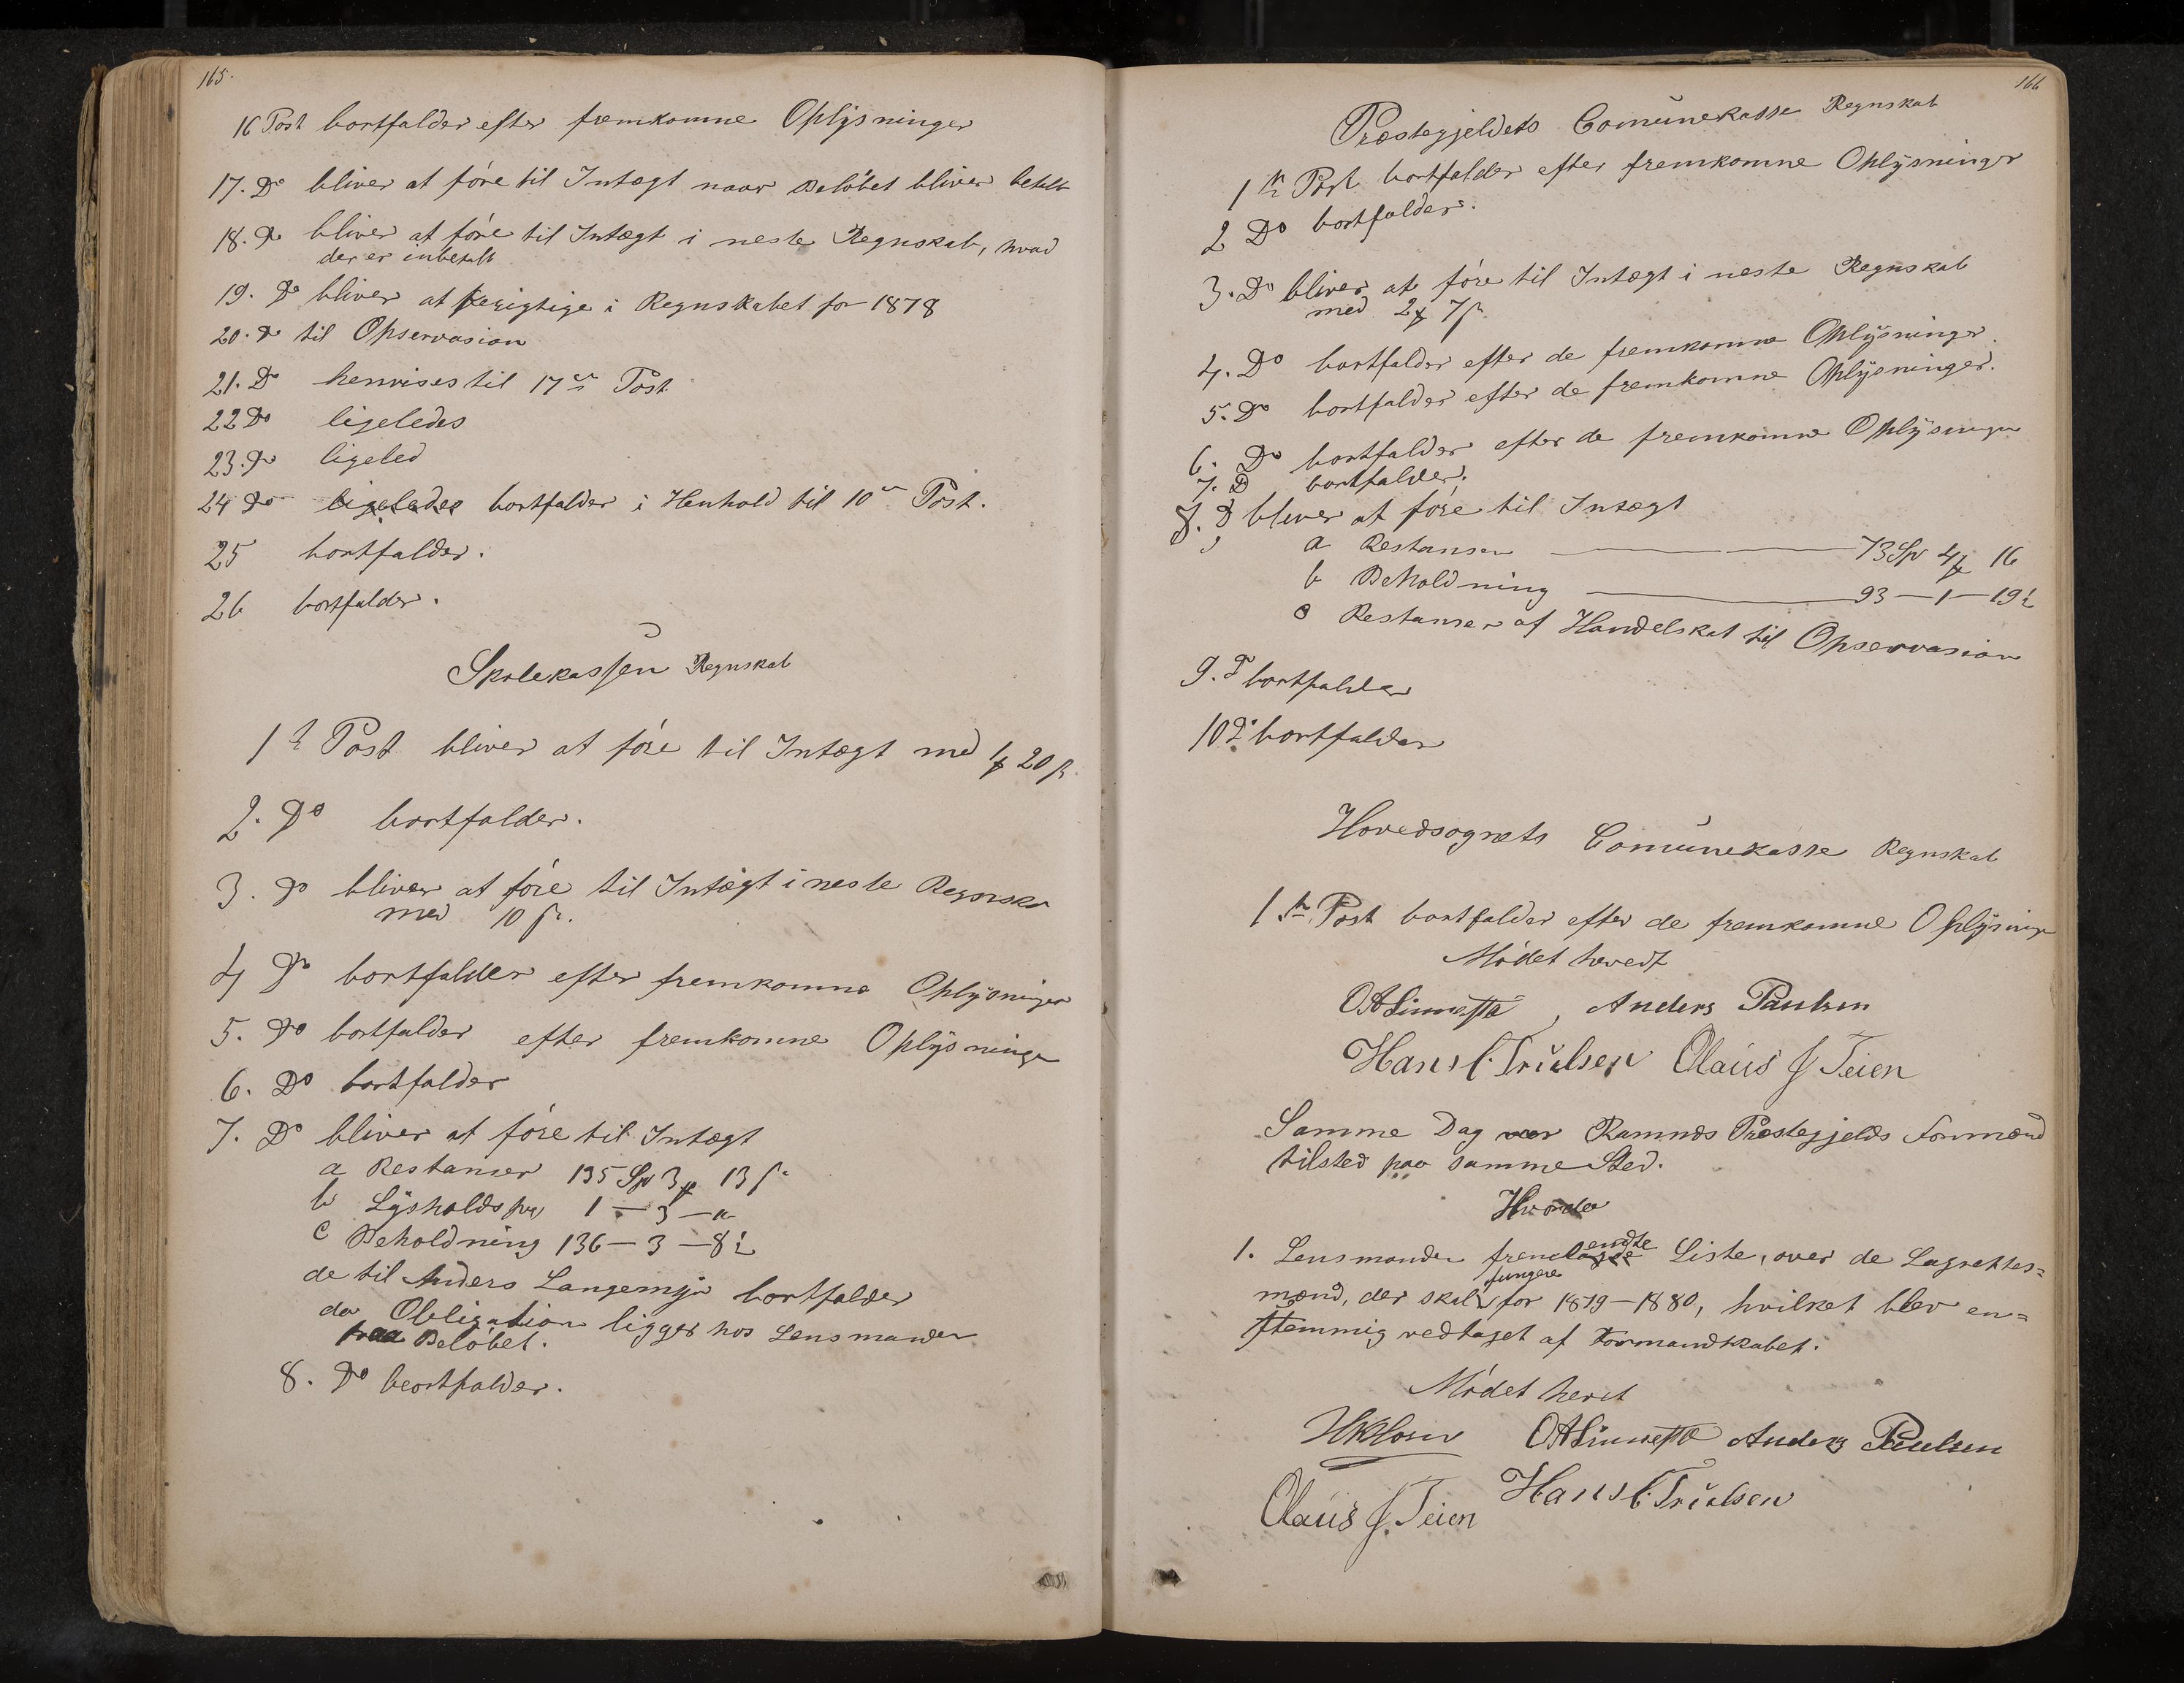 165.
16 Post bortfalder efter fremkomne Oplysninger
17. Do bliver at føre til Intægt naar Beløbet bliver betalt
18. Do bliver at føre til Intægt i neste Regnskab, hvad
der er inbetalt
19. Do bliver at berigtige i Regnskabet for 1878
20. Do til Opservasion
21. Do henvises til 17de Post
22 Do ligeledes
23. Do ligeled
24 Do ligeledes bortfalder i Henhold til 10de Post.
25 bortfalder.
26 bortfalder.
Skolekassen Regnskab
1ste Post bliver at føre til Intægt med 1 20 s
2. Do bortfalder.
3. Do bliver at føre til Intægt i neste Regnska
med 10 s.
4 Do bortfalder efter fremkomne Oplysninger
5. Do bortfalder efter fremkomne Oplysninge
6. Do bortfalder
7. Do bliver at føre til Intægt
a Restanser 135 Sp 3 13 s
b Lysholds 1 — 3 — a
c Beholdning 136 — 3 — 8½
de til Anders Langemyr bortfalder
da Obligation ligger hos Lensmanden
paa Beløbet.
8. Do beortfalder.
166
Præstegjeldets Comunekasse Regnskab
1ste Post bortfalder efter fremkomne Oplysninger
2 Do bortfalder.
3. Do bliver at føre til Intægt i neste Regnskab
med 2 7 s
4. Do bortfalder efter de fremkomne Oplysninger.
5. Do bortfalder efter de fremkomne Oplysninger.
6. Do bortfalder efter de fremkomne Oplysninger
7. D bortfalder.
8. D bliver at føre til Intægt
a Restanser — 73 Sp 4 16
b Beholdning — 93 — 1 — 19½
c Restanser af Handelskat til Opservasion
9. D bortfalder
10 D bortfalder
Hovedsognets Comunekasse Regnskab
1ste Post bortfalder efter de fremkomne Oplysninge
Mødet hævedt
OALinnestø, Anders Paulsen
Hans C. Trulsen Olaus J Teien
Samme Dag var Ramnæs Præstegjelds Formænd
tilsted paa samme Sted.
Hvorda
1. Lensmanden fremlagde endte Liste, over de Lagrettes=
mænd, der skal fungere for 1879 — 1880, hvilket blev en=
stemmig vedtaget af Formandskabet.
Mødet hevet
OALinnestø Anders Paulsen
Olaus J. Teien Hans C. Trulsen